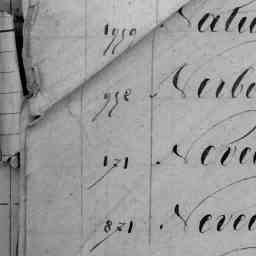 1950 Natu
958 Nerb
171 Neve
871 Neve